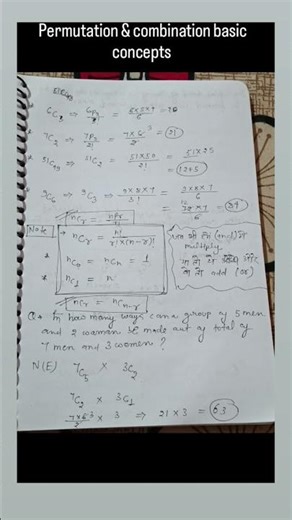 Permutation & combination basic
concepts
⁶C₃ ⇒ ⁶P₃ = = 20
⁷C₂ ⇒ ⁷P₂/2! = 7×6/2 = 21
⁵¹C₄₉ ⇒ ⁵¹C₂ = 51×50/2! = 51×25
= 1275
⁹C₆ ⇒ ⁹C₃ ⇒ 9×8×7/3! = 9×8×7/6 = 84
nCr = nPr/r!
Note nCr = n!/r!×(n-r)!
* nC₀ = nCn = 1
* nC₁ = n
(and)
multiply
add (or)
nCr = nCn-r
Q. In how many ways can a group of 5 men
and 2 women be made out of total of
7 men and 3 women?
N(E) ⁷C₅ × ³C₂
⁷C₂ × ³C₁
7×6/2 × 3 ⇒ 21 × 3 = 63